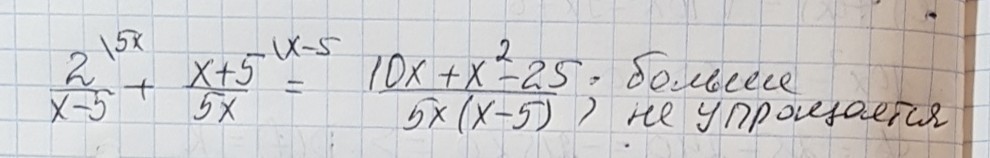 2\5x/(x-5) + (x+5)\x-5/(5x) = (10x + x² - 25)/(5x(x-5)); больше
не упрощается